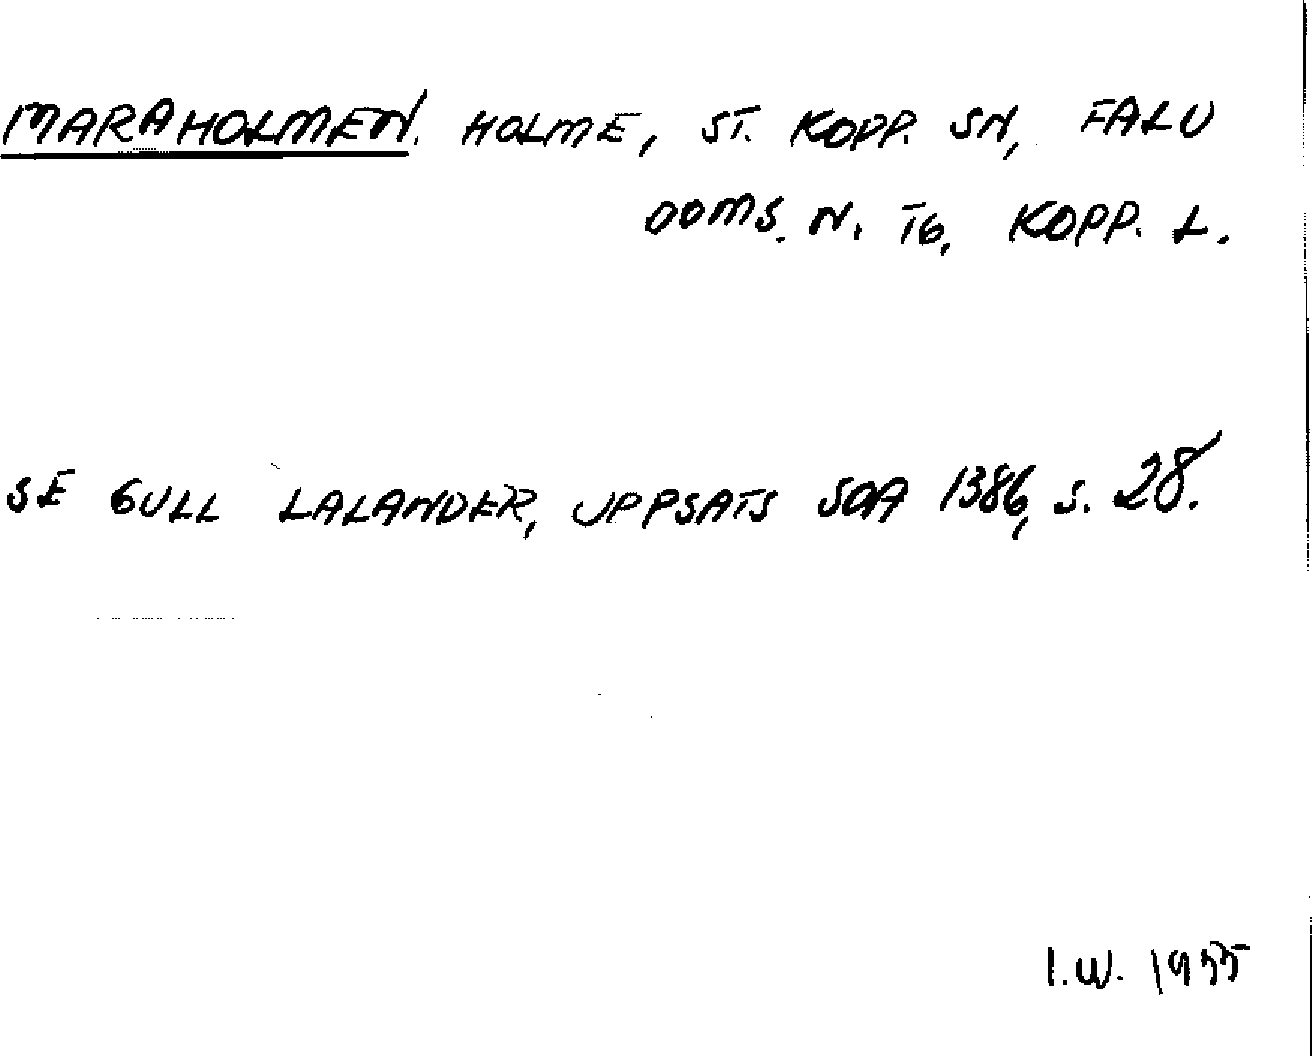 MARAHOLMEN. HOLME, ST. KOPP. SN, FALU
DOMS. N. TG, KOPP. L.
SE GULL LALANDER, UPPSATS SOA 1386, S. 28.
I.W. 1955